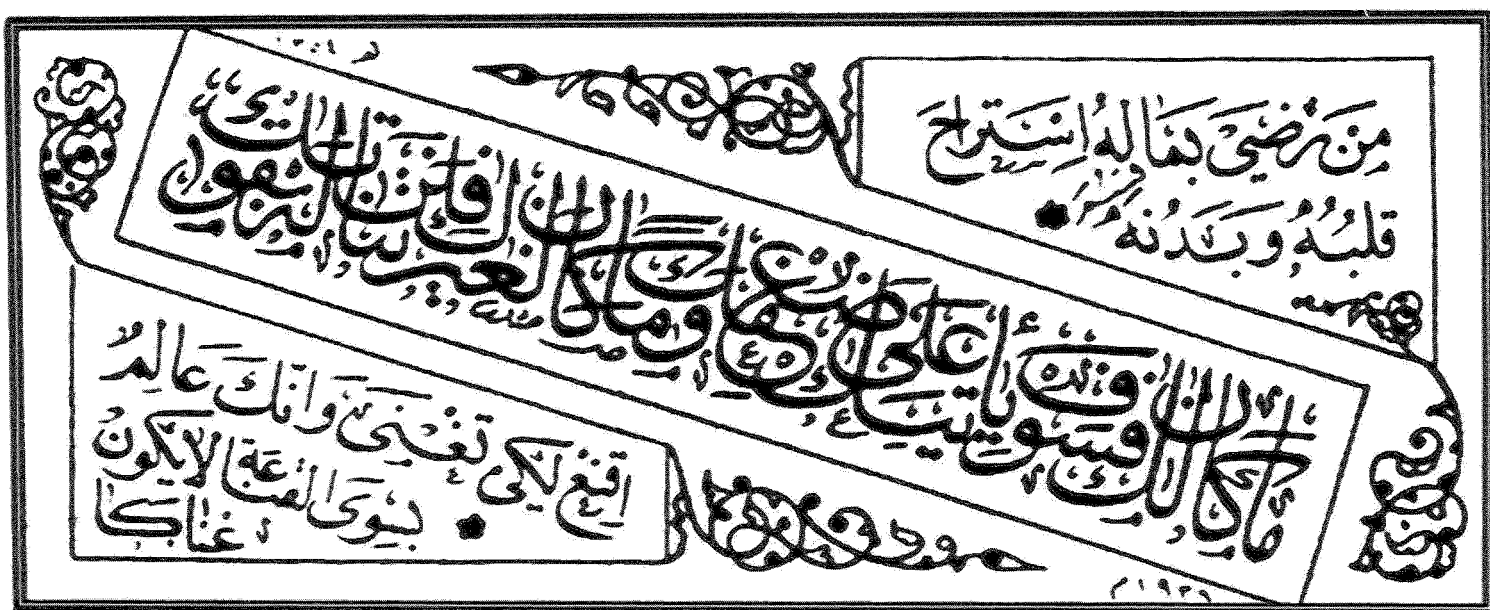 مَن رَضِيَ بِمَا لَهُ اِسْتَرَاحَ
قَلبُهُ وَبَدَنُه
مَا كَانَ لَكَ فَسَوفَ يَأتِيكَ عَلى ضَعفِكَ وَمَا كَانَ لِغَيرِكَ فَلَن تَنَالَهُ بِقُوَّتِكَ
اِقنَعْ لِكَي تَغْنَى وَانَّكَ عَالِمٌ
بِسِوَى القَنَاعَةِ لَا يَكُونُ
غِنَاكَا